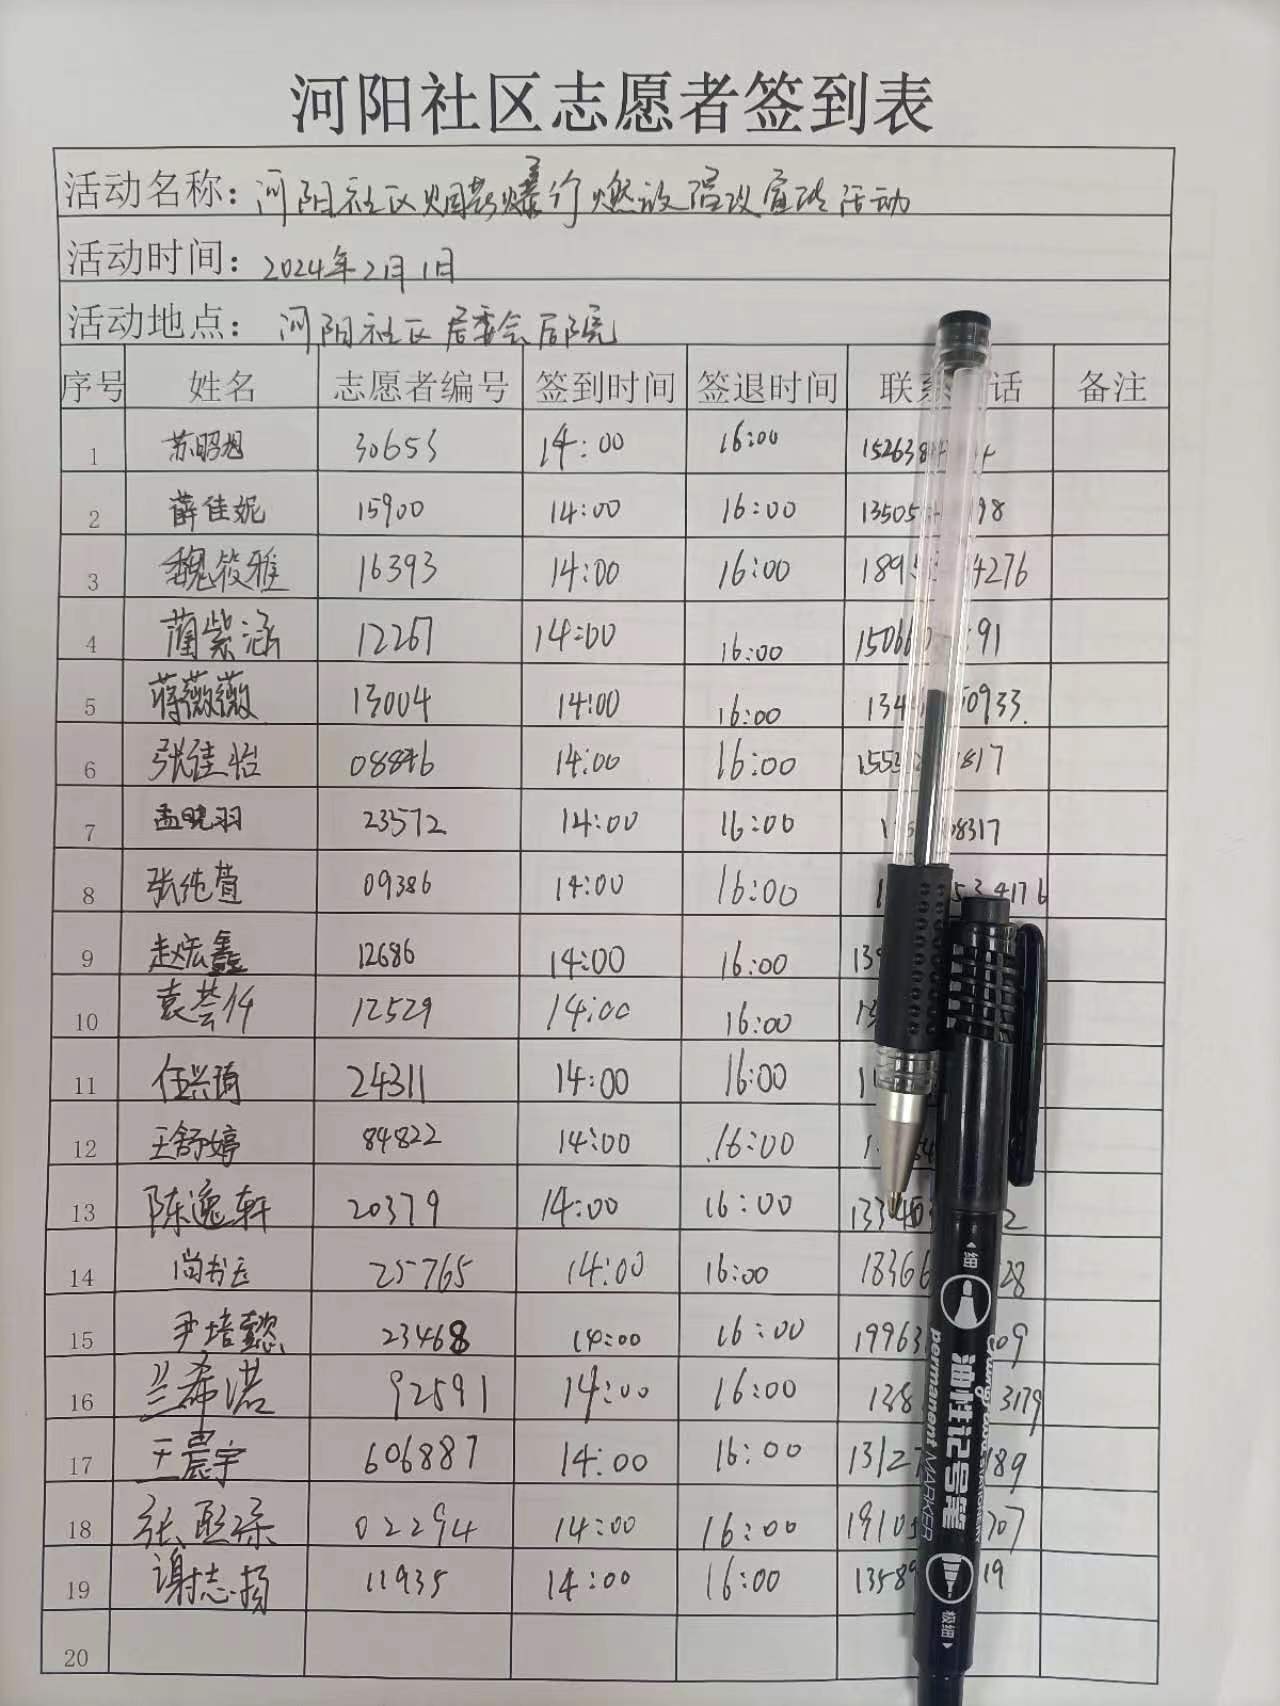 河阳社区志愿者签到表
活动名称：河阳社区烟花爆竹燃放倡议宣传活动
活动时间：2024年2月1日
活动地点：河阳社区居委会后院
序号 姓名 志愿者编号 签到时间 签退时间 联系 话 备注
1 苏昭旭 30653 14:00 16:00 152638
2 薛佳妮 15900 14:00 16:00 13505 98
3 魏筱雅 16393 14:00 16:00 189 4276
4 蔺紫涵 12267 14:00 16:00 15066 91
5 蒋薇薇 13004 14:00 16:00 134 0933
6 张佳怡 08846 14:00 16:00 155 817
7 孟晓羽 23572 14:00 16:00 1 8317
8 张纯萱 09386 14:00 16:00 1 534176
9 赵宏鑫 12686 14:00 16:00 13
10 袁荟仟 12529 14:00 16:00
11 任兴琦 24311 14:00 16:00 1
12 王舒婷 84822 14:00 16:00
13 陈逸轩 20379 14:00 16:00 13340 2
14 尚书 25765 14:00 16:00 18366 28
15 尹培懿 23468 14:00 16:00 19963 09
16 兰希诺 92591 14:00 16:00 138 3179
17 王晨宇 606887 14:00 16:00 13127 189
18 张 02294 14:00 16:00 1910 707
19 谢志扬 11935 14:00 16:00 13589 19
20
permanent MARKER
油性记号笔